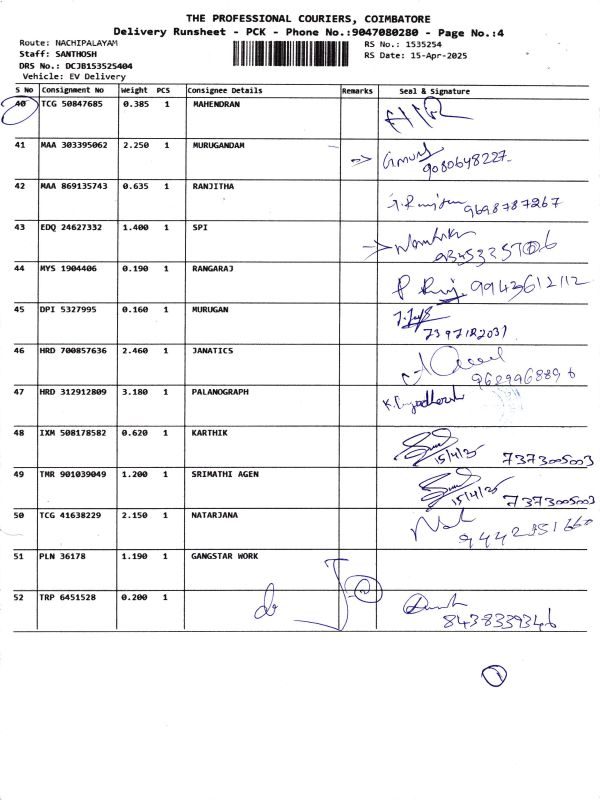 THE PROFESSIONAL COURIERS, COIMBATORE
Delivery Runsheet - PCK - Phone No.:9047080280 - Page No.:4
Route: NACHIPALAYAM
Staff: SANTHOSH
DRS No.: DCJB153525404
Vehicle: EV Delivery
RS No.: 1535254
RS Date: 15-Apr-2025
S No Consignment No Weight PCS Consignee Details Remarks Seal & Signature
40 TCG 50847685 0.385 1 MAHENDRAN
41 MAA 303395062 2.250 1 MURUGANDAM 9080648227
42 MAA 869135743 0.635 1 RANJITHA 9698787267
43 EDQ 24627332 1.400 1 SPI
44 MYS 1904406 0.190 1 RANGARAJ 9943612112
45 DPI 5327995 0.160 1 MURUGAN
46 HRD 700857636 2.460 1 JANATICS
47 HRD 312912809 3.180 1 PALANOGRAPH
48 IXM 508178582 0.620 1 KARTHIK 15/4/25 7373005003
49 TMR 901039049 1.200 1 SRIMATHI AGEN 15/4/25 7373005003
50 TCG 41638229 2.150 1 NATARJANA
51 PLN 36178 1.190 1 GANGSTAR WORK
52 TRP 6451528 0.200 1 8438339346
1